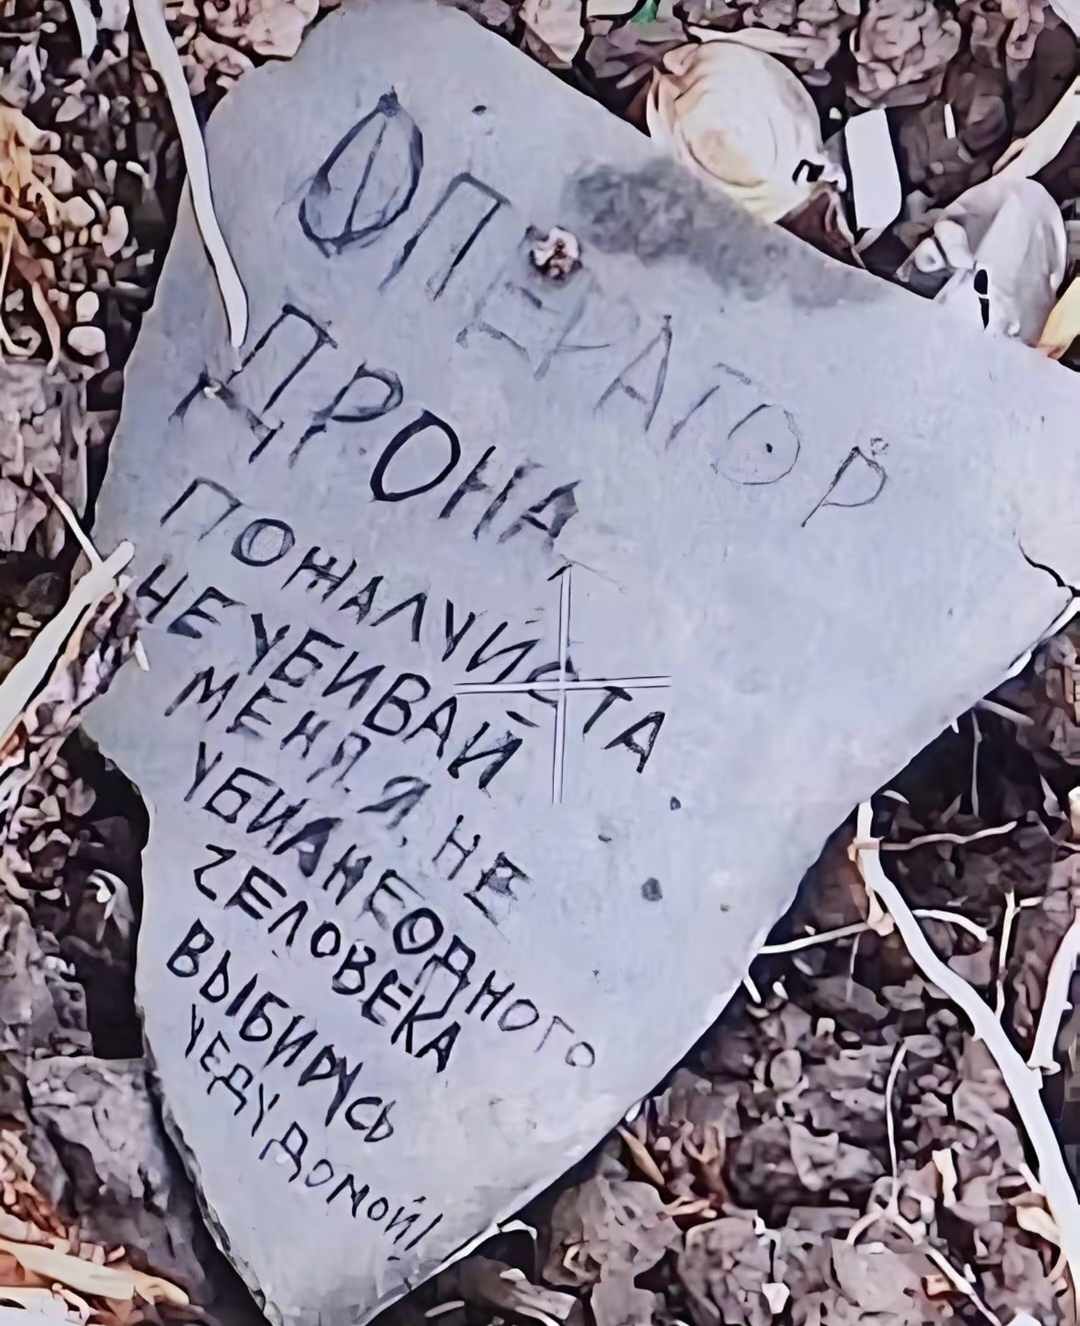 ОПЕРАТОР
ДРОНА
ПОЖАЛУЙСТА
НЕ УБИВАЙ
МЕНЯ. Я. НЕ
УБИЛ НЕОДНОГО
ЧЕЛОВЕКА
ВЫБИРУСЬ
УЕДУ ДОМОЙ!